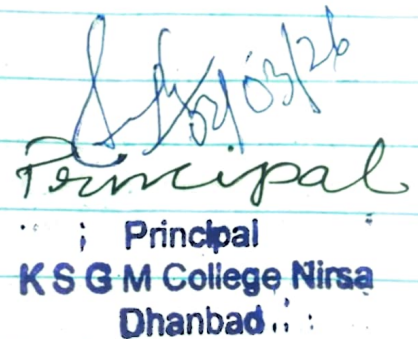 02/03/26
Principal
Principal
K S G M College Nirsa
Dhanbad